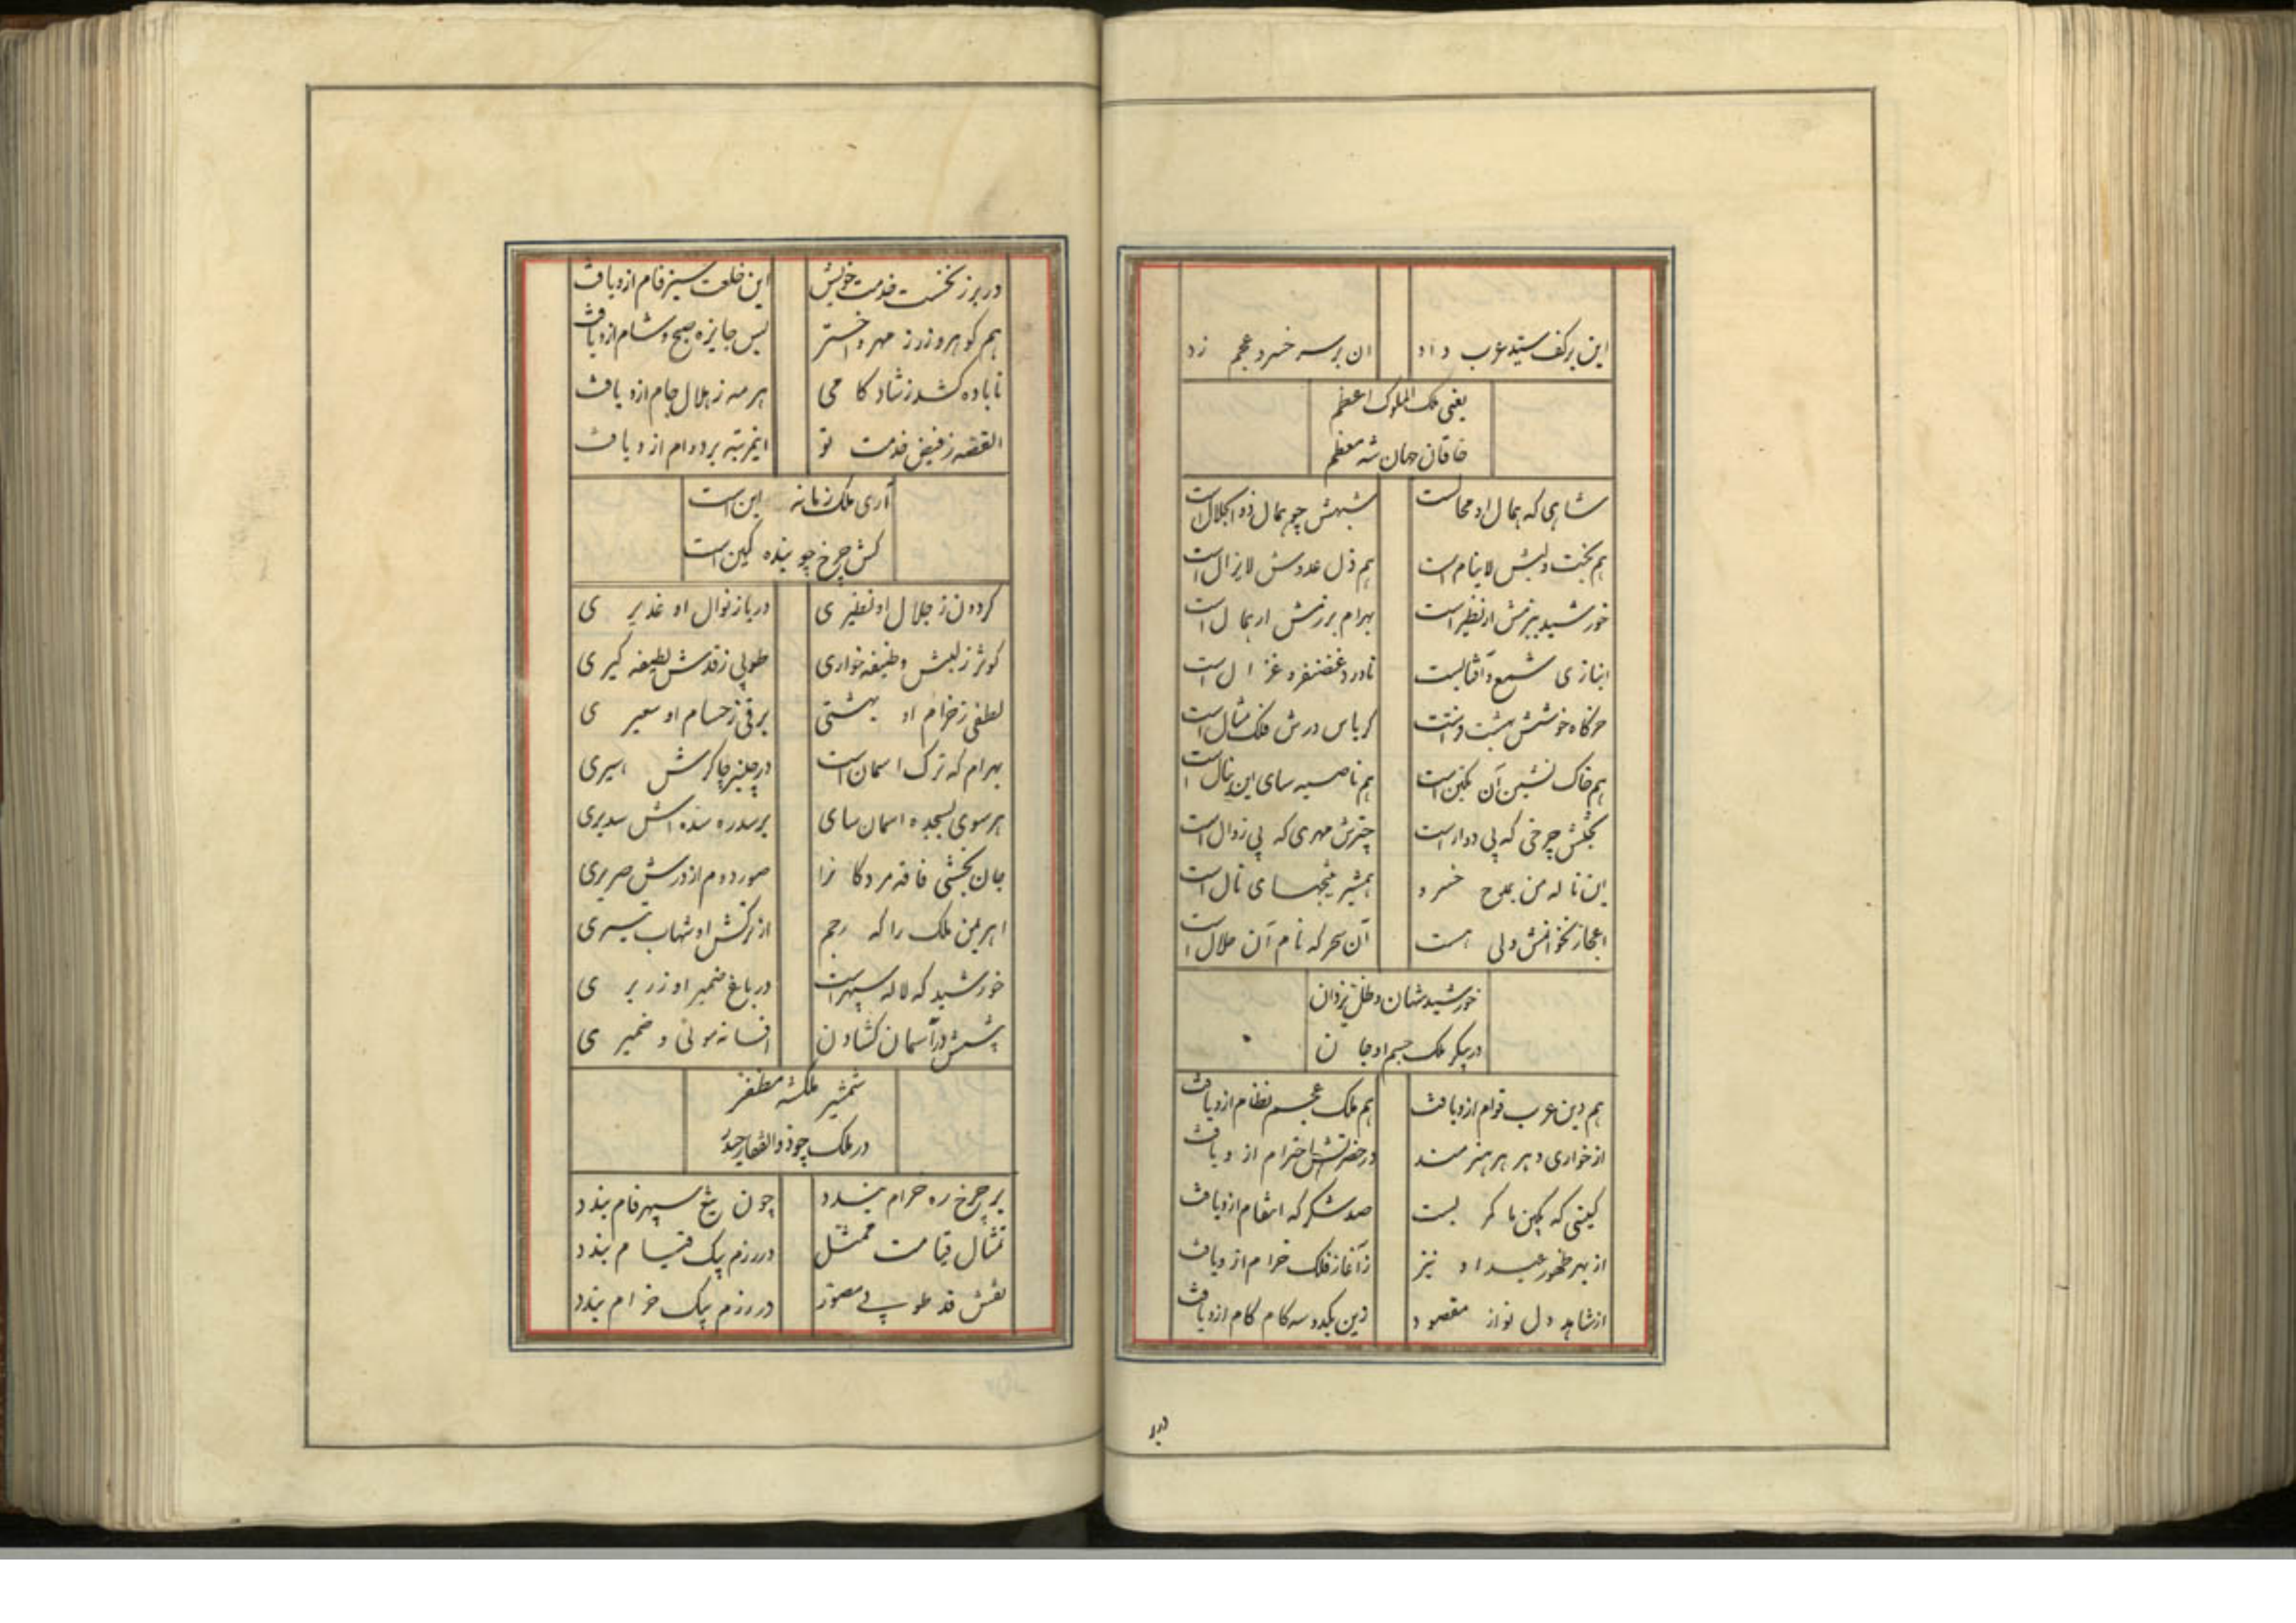 این بر کف سید عرب داد
ان بر سر خسرو عجم زد
یعنی ملک الملوک اعظم
خاقان جهان شه معظم
شاهی که همال او محالست
شبهش چو همال ذو الجلال است
هم بخت ولیش لاینام است
هم ذل عدوش لایزال است
خورشید ببزمش ار نظیر است
بهرام برزمش ار همال است
انبازی شمع و آفتابست
ناورد غضنفر و غزال است
خرگاه خوشش بهشت
کریاس درش فلک مثال است
هم خاک نشین آن است
هم ناصیه سای این است
تختش چرخی که بی دوار است
چترش مهری که بی زوال است
این ناله من بمدح خسرو
اعجاز نخوانمش ولی هست
آن سحر که نام آن حلال است
خورشید شهان و ظل یزدان
در پیکر ملک جسم او جان
هم دین عرب قوام ازو یافت
هم ملک عجم نظام ازو یافت
از خواری دهر هر هنرمند
در حضرتش احترام ازو یافت
گیتی که بکین ما کمر بست
صد شکر که انتقام ازو یافت
از بهر ظهور عهد او نیز
ز آغاز فلک خرام ازو یافت
از شاهد دل نواز مقصود
زین یکدوسه کام کام ازو یافت
در بر
در بر ز نخست خدمت خویش
این خلعت سبز فام ازو یافت
هم گوهر و زر ز مهر و اختر
بس جایزه صبح و شام ازو یافت
تا باده کشد ز شاد کامی
هر مه ز هلال جام ازو یافت
القصه ز فیض خدمت تو
اینمرتبه بر دوام ازو یافت
آری ملک زمانه این است
کش چرخ چو بنده کهین است
گردون ز جلال او نظیری
دریا ز نوال او غدیری
کوثر ز لبش وظیفه خواری
طوبی ز قدش لطیفه گیری
لطفی ز خرام او بهشتی
برقی ز حسام او سعیری
بهرام که ترک اسمان است
در چنبر چاکرش اسیری
هر سوی بسجده اسمان سای
بر سدره سده اش سدیری
جان بخشی فاقه مردگان را
صور دوم از درش صریری
اهریمن ملک را که رجم
از ترکش او شهاب تیری
خورشید که لاله سپهر است
در باغ ضمیر او زریری
پشتش در آسمان گشادن
افسانه موئی و خمیری
شمشیر ملکشه مظفر
در ملک چو ذوالفقار حیدر
بر چرخ ره خرام بندد
چون تیغ سپهر فام بندد
تمثال قیامت ممثل
در رزم بیک قیام بندد
نقش قد طوبی مصور
در رزم بیک خرام بندد